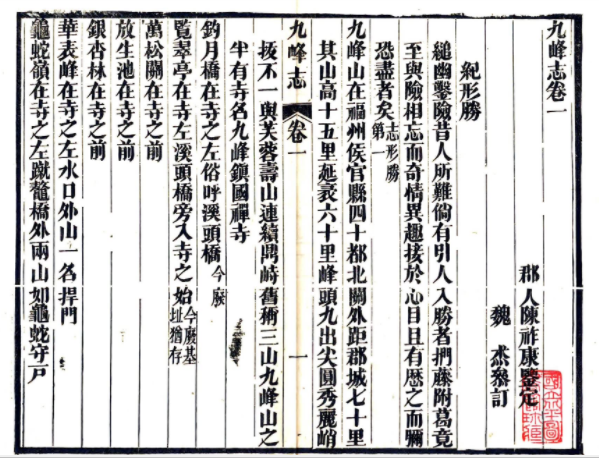 九峰志卷一
郡人陳祚康鑒定
魏 杰叅訂
紀形勝
縋幽鑿險昔人所難倘有引人入勝者捫藤附葛竟
至與險相忘而奇情異趣接於心目且有歷之而彌
恐盡者矣志形勝第一
九峰山在福州侯官縣四十都北關外距郡城七十里
其山高十五里延袤六十里峰頭九出尖圓秀麗峭
九峰志 卷一 一
拔不一與芙蓉壽山連續鼎峙舊稱三山九峰山之
半有寺名九峰鎮國禪寺
釣月橋在寺之左俗呼溪頭橋今廢
覽翠亭在寺左溪頭橋旁入寺之始今廢基址猶存
萬松關在寺之前
放生池在寺之前
銀杏林在寺之前
華表峰在寺之左水口外山一名捍門
龜蛇嶺在寺之左蹴鼇橋外兩山如龜蛇守戶